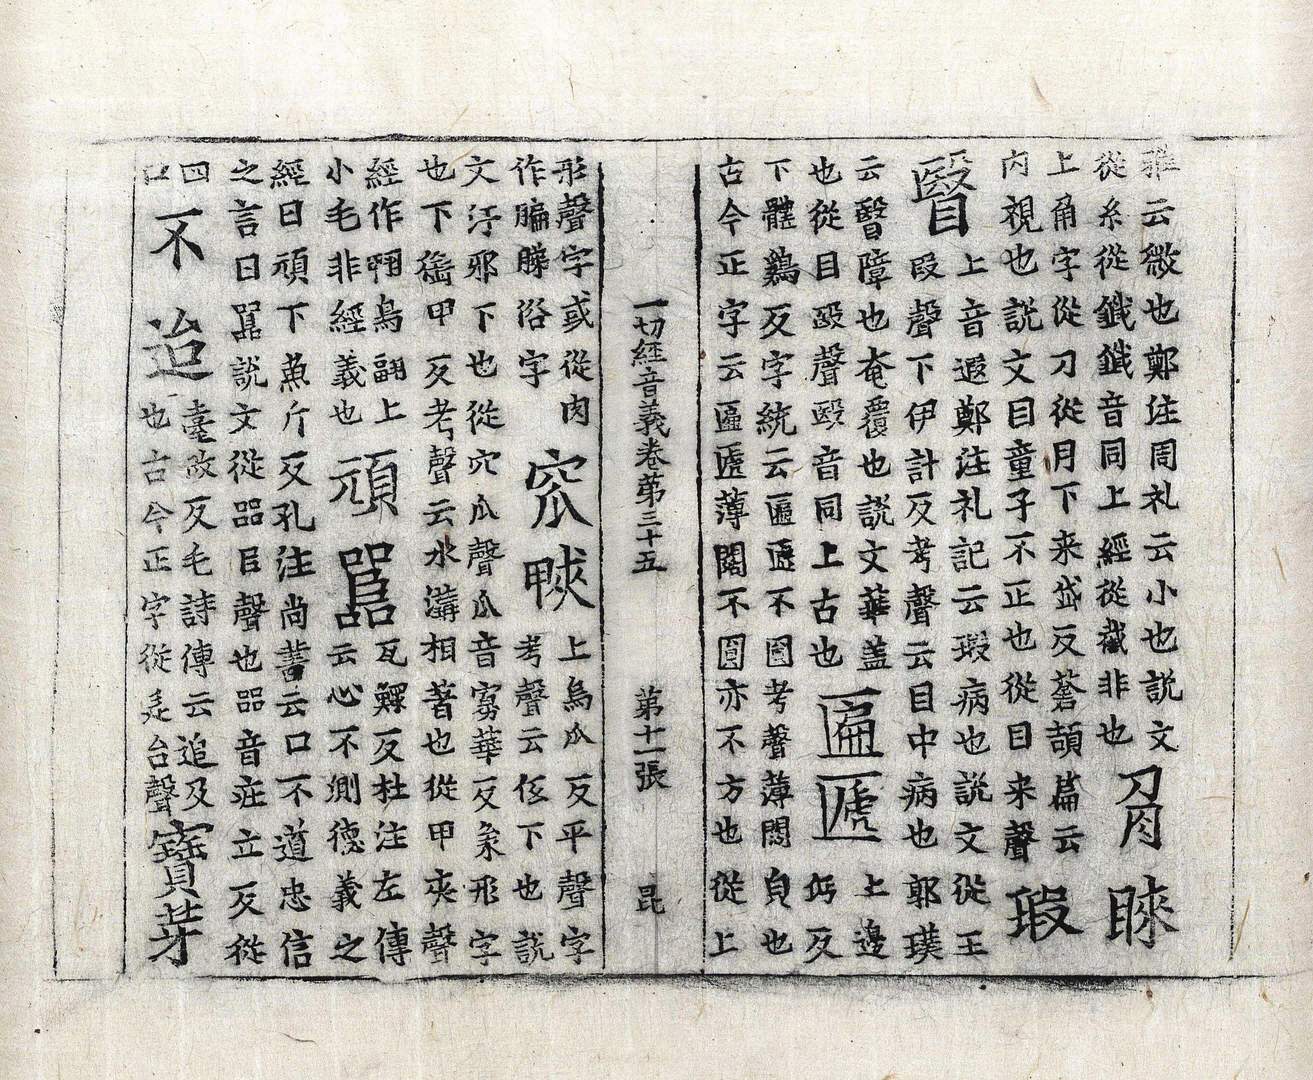 雅云緻也鄭注周礼云小也説文
從糸從鐵鐵音同上經從截非也
睞
上甬字從刀從月下来岱反蒼頡篇云
内視也説文目童子不正也從目来聲
瑕
瞖
上音遐鄭注礼記云瑕病也説文從王
叚聲下伊計反考聲云目中病也郭璞
云瞖障也奄覆也説文華盖
也從目殹聲殹音同上古也
匾㔸
上邊
丏反
下體鷄反字統云匾㔸不圓考聲薄闊皃也
古今正字云匾㔸薄闊不圓亦不方也從上
一切經音義卷第三十五 第十一張 昆
形聲字或從肉
作俗字
窊
上烏瓜反平聲字
考聲云低下也説
文汙邪下也從穴瓜聲瓜音寡華反象形字
也下甲反考聲云水溝相著也從甲夾聲
經作鳥翮上
小毛非經義也
頑嚚
瓦鰥反杜注左傳
云心不則德義之
經曰頑下魚斤反孔注尚書云口不道忠信
之言曰嚚説文從㗊臣聲也㗊音莊立反從
四
口
不迨
臺改反毛詩傳云迨及
也古今正字從辵台聲
寳芽